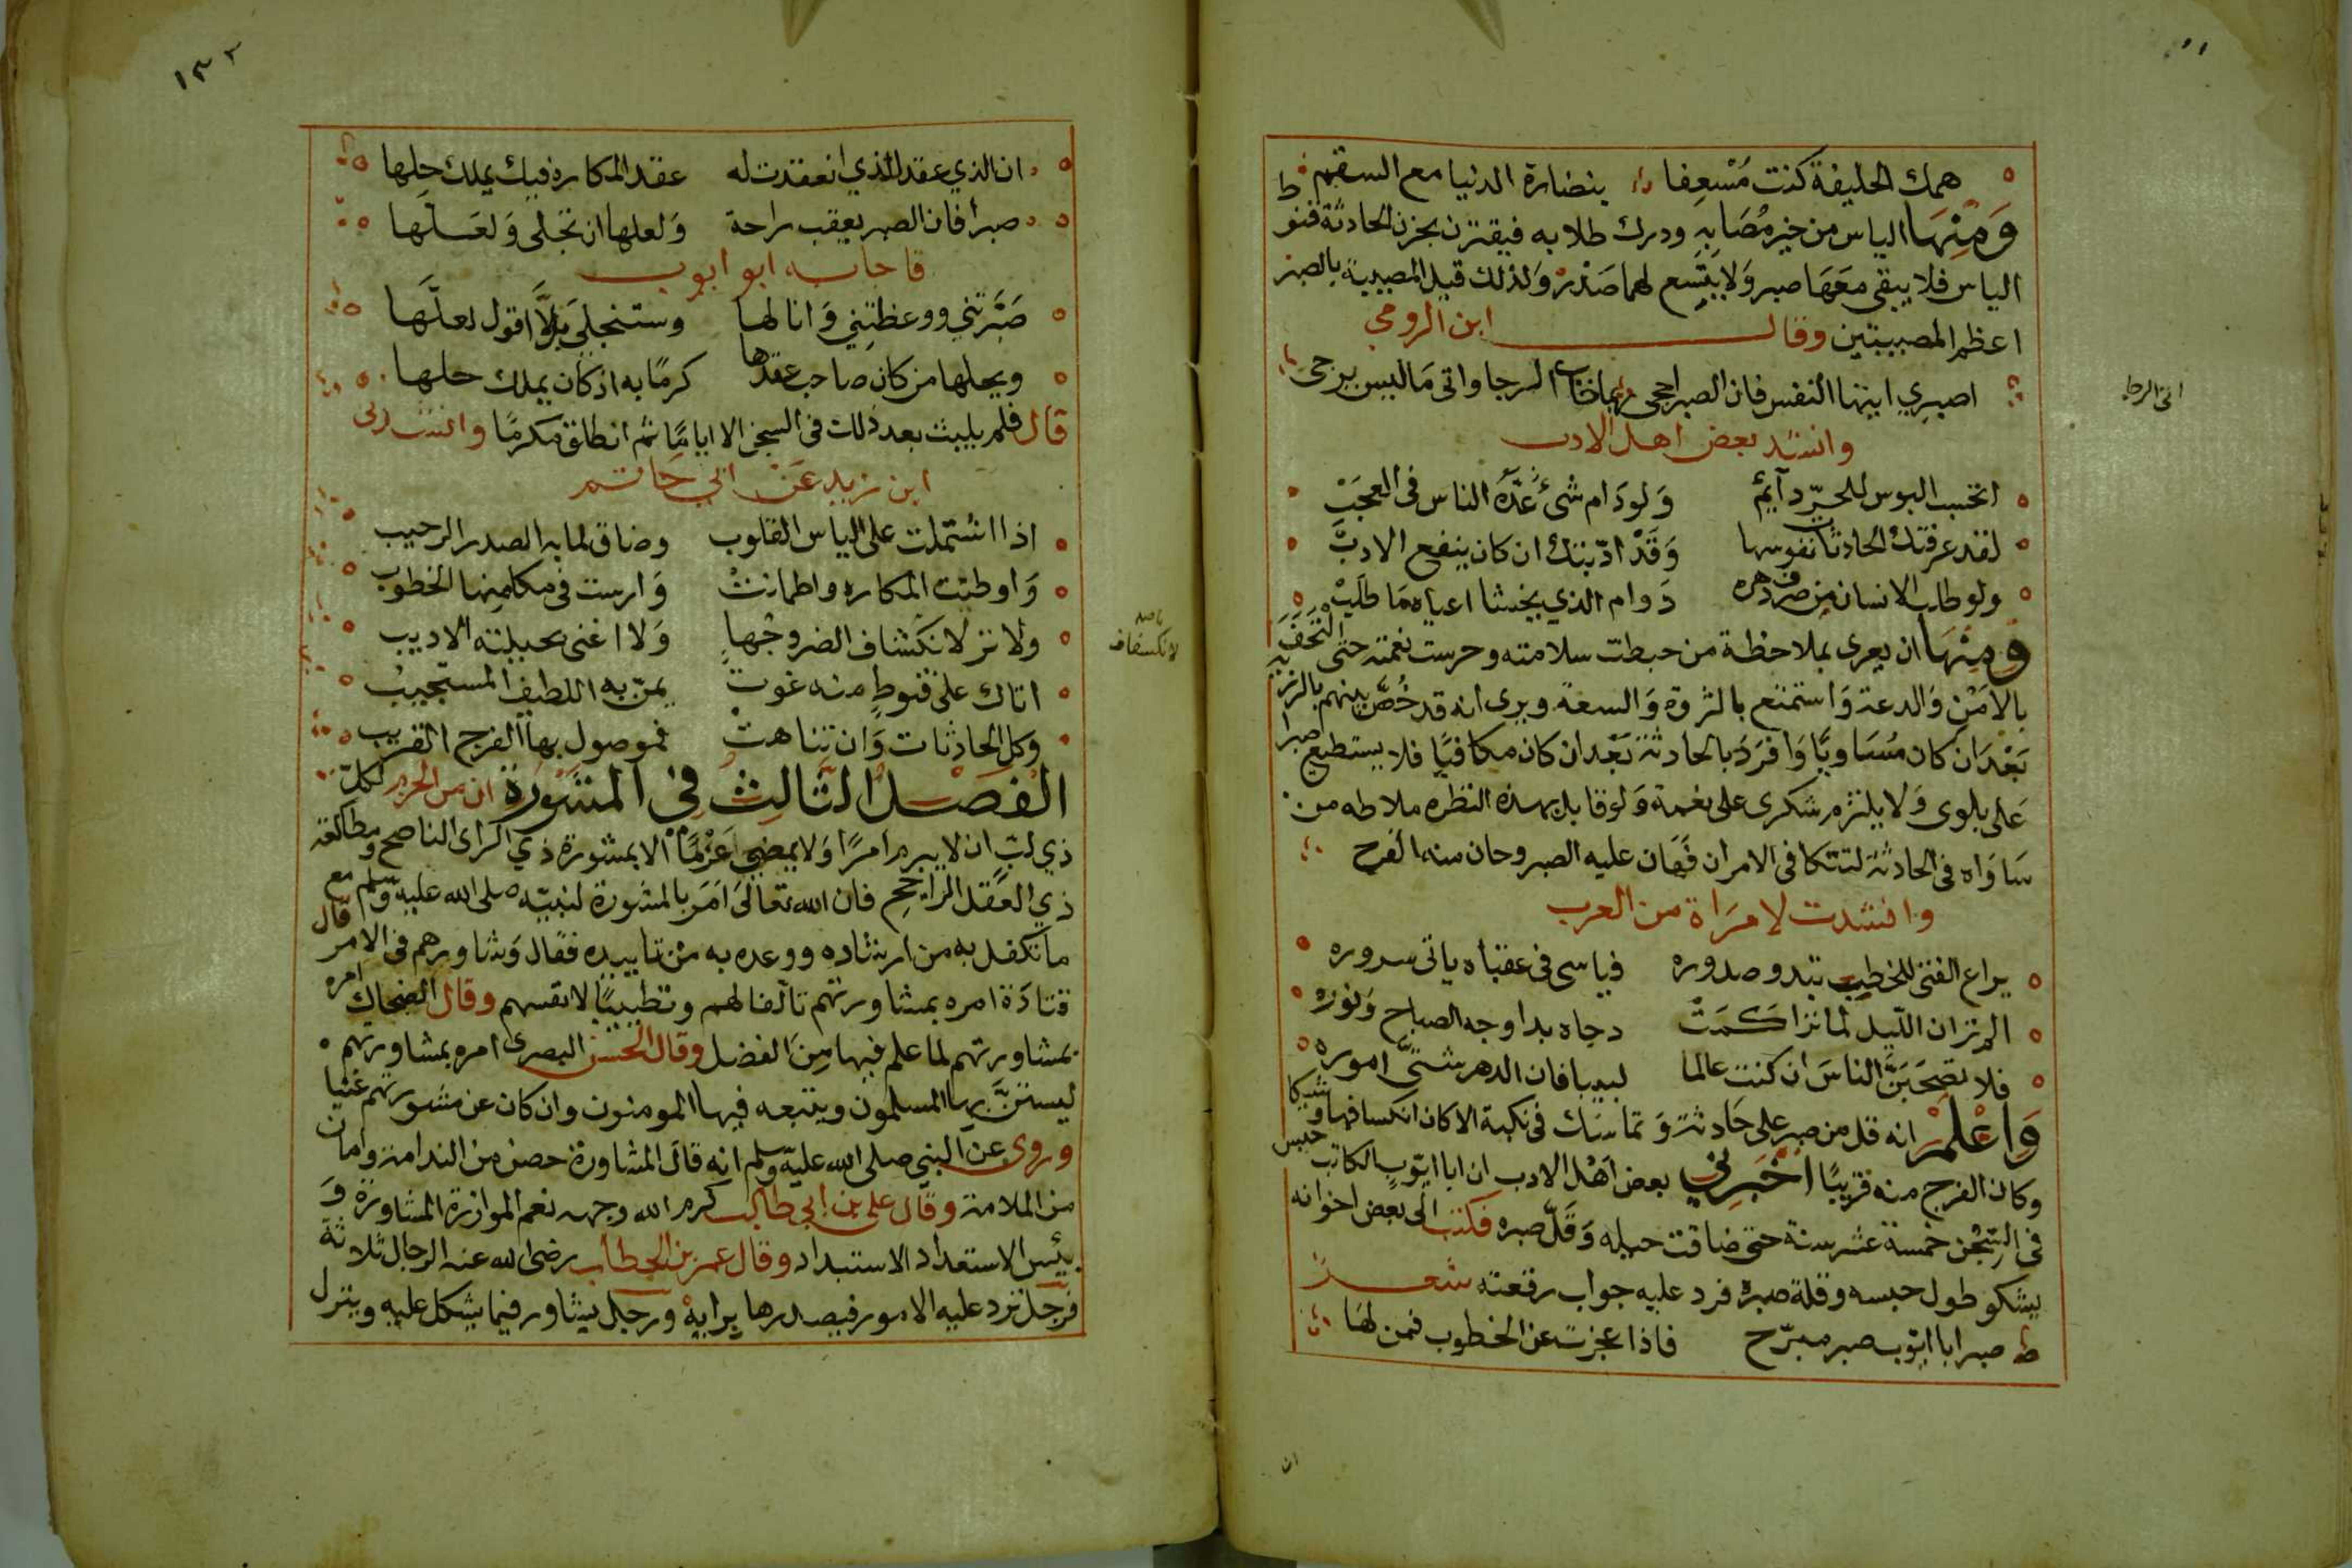 همك الخليفة كنت مُسْعِفا بنضارة الدنيا مع السقم
وَمِنْهَا الياس من خير مُصَابِهِ ودرك طلابه فيقترن بحزن الحادثة قنو
الياس فلا يبقى مَعَهَا صبر وَلا يتسع لهما صَدْرٌ وَلذلك قيل المصيبة بالصبر
اعظم المصيبتين وقال ابن الرومي
اصبري ايتها النفس فان الصبر احجى ربما خاب الرجا واتى مَا ليس يرجى
اتى الرجا
وانشد بعض اهل الادب
اتحسب البوس للحرّ دآيمٌ وَلو دَام شئ عُدَّهُ الناس فى العجَبْ
لقد عرفتك الحادثات نفوسها وَقَدْ ادّبتك ان كان ينفع الادبَّ
ولو طلب الانسان من صرف دهره دَوام الذي يخشا اعياه مَا طلَبْ
ومِنْهَا ان يعرى بملاحظة من حيطت سلامته وحرست نعمته حتى التَحَفَ
بالامْنِ وَالدعة وَاستمتع بالثروة وَالسعة ويرى انه قد خُصَّ بينهم بالرزية
بَعْدَ ان كان مُسَاويًا وَافرَدَ بالحادثة بَعْدَ ان كان مكافيًا فلا يستطيع صبرا
عَلى بلوى وَلا يلتزم شكرى على نعمة وَلو قابل بهذه النظره ملاحظه من
سَاوَاه فى الحادثة لتتكافى الامران فهَان عليه الصبر وحان منه الفرح
وانشدت لامرَاة من العرب
يراع الفتى للخطب تبدو صدوره فياسى فى عقباه ياتى سروره
الم تر ان الليل لما تراكَمَتْ دجاه بدا وجه الصباح وَنوره
فلا تصحَبَنَّ الناسَ ان كنت عالما لبيبا فان الدهر شتىّ اموره
وَاعْلَمْ انه قل من صبر على حَادثة وَتماسَك فى نكبة الا كان انكسافها وشيكا
وكان الفرج منه قريبًا اخْبَرَنِي بعض اهْل الادب ان ابا ايّوب الكاتب حبس
فى السِّجْن خمسة عشر سنة حتى ضاقت حيله وَقَلّ صبره فكتب الى بعض اخوانه
يشكو طول حبسه وقلة صبره فرد عليه جواب رقعته شعر
صبرا ابا ايّوب صبر مبرّح فاذا عجزت عن الخطوب فمن لها
ان
١٣٢
ان الذي عقد الذي انعقدت له عقد المكاره فيك يملك حلها
صبرا فان الصبر يعقب راحة وَلعلها ان تجلى وَلعَسلّها
فاجابه ابو ايوب
صَبَّرتني ووعظتني وَانا لها وستنجلى بل لا اقول لعلّها
ويحلها من كان صاحب عقدها كرمًا به اذ كان يملك حلها
قال فلم يلبث بعد ذلك فى السجن الا ايامًا ثم انطلق مكرمًا وانشدنى
ابن زيد عَنْ ابي حَاتم
اذا اشتملت على الياس القلوب وضاق لما به الصدر الرحيب
وَاوطنت المكاره واطمانت وَارست فى مكامنها الخطوب
ولا تر لانكشاف الضر وجهاِ وَلا اغنى بحيلته الاديب
لانكسفاف
اتاك على قنوطٍ منه غوث يمنّ به اللطيف المستجيب
وكل الحادثات وَان تناهت فموصول بها الفرج القريب
الفَصْل الثَّالِث فِي المَشُورَةِ ان من الحزم لكلّ
ذي لبّ ان لا يبرم امرًا وَلا يمضى عَزْمًا الا بمشورة ذي الراى الناصح ومطالعة
ذي العَقل الراجح فان الله تعَالى اَمَرَ بالمشورة لنبيّه صلى الله عليه وسلم مع
ما تكفل به من ارشاده ووعده به من تاييده فقال وَشاورهم فى الامر قال
قتادَة امره بمشاورتهم تالفا لهم وتطييبًا لانفسهم وقال الضحاك امره
بمشاورتهم لما علم فيها مِنَ الفضل وقال الحسن البصرى امره بمشاورتهم
ليستنَّ بها المسلمون ويتبعه فيها المومنون وان كان عن مشورتهم غنيا
وروى عن النبى صلى الله عليه وسلم انه قالَ المشاورة حصن من الندامة وامان
من الملامة وقال على بن ابي طالب كرم الله وجهه نعم الموازرة المشاورة وَ
بئس الاستعداد الاستبداد وقال عمر بن الخطاب رضى الله عنه الرجال ثلاثة
فرجل ترد عليه الامور فيصدرها برايهِ ورجل يشاور فيما يشكل عليه وينزل